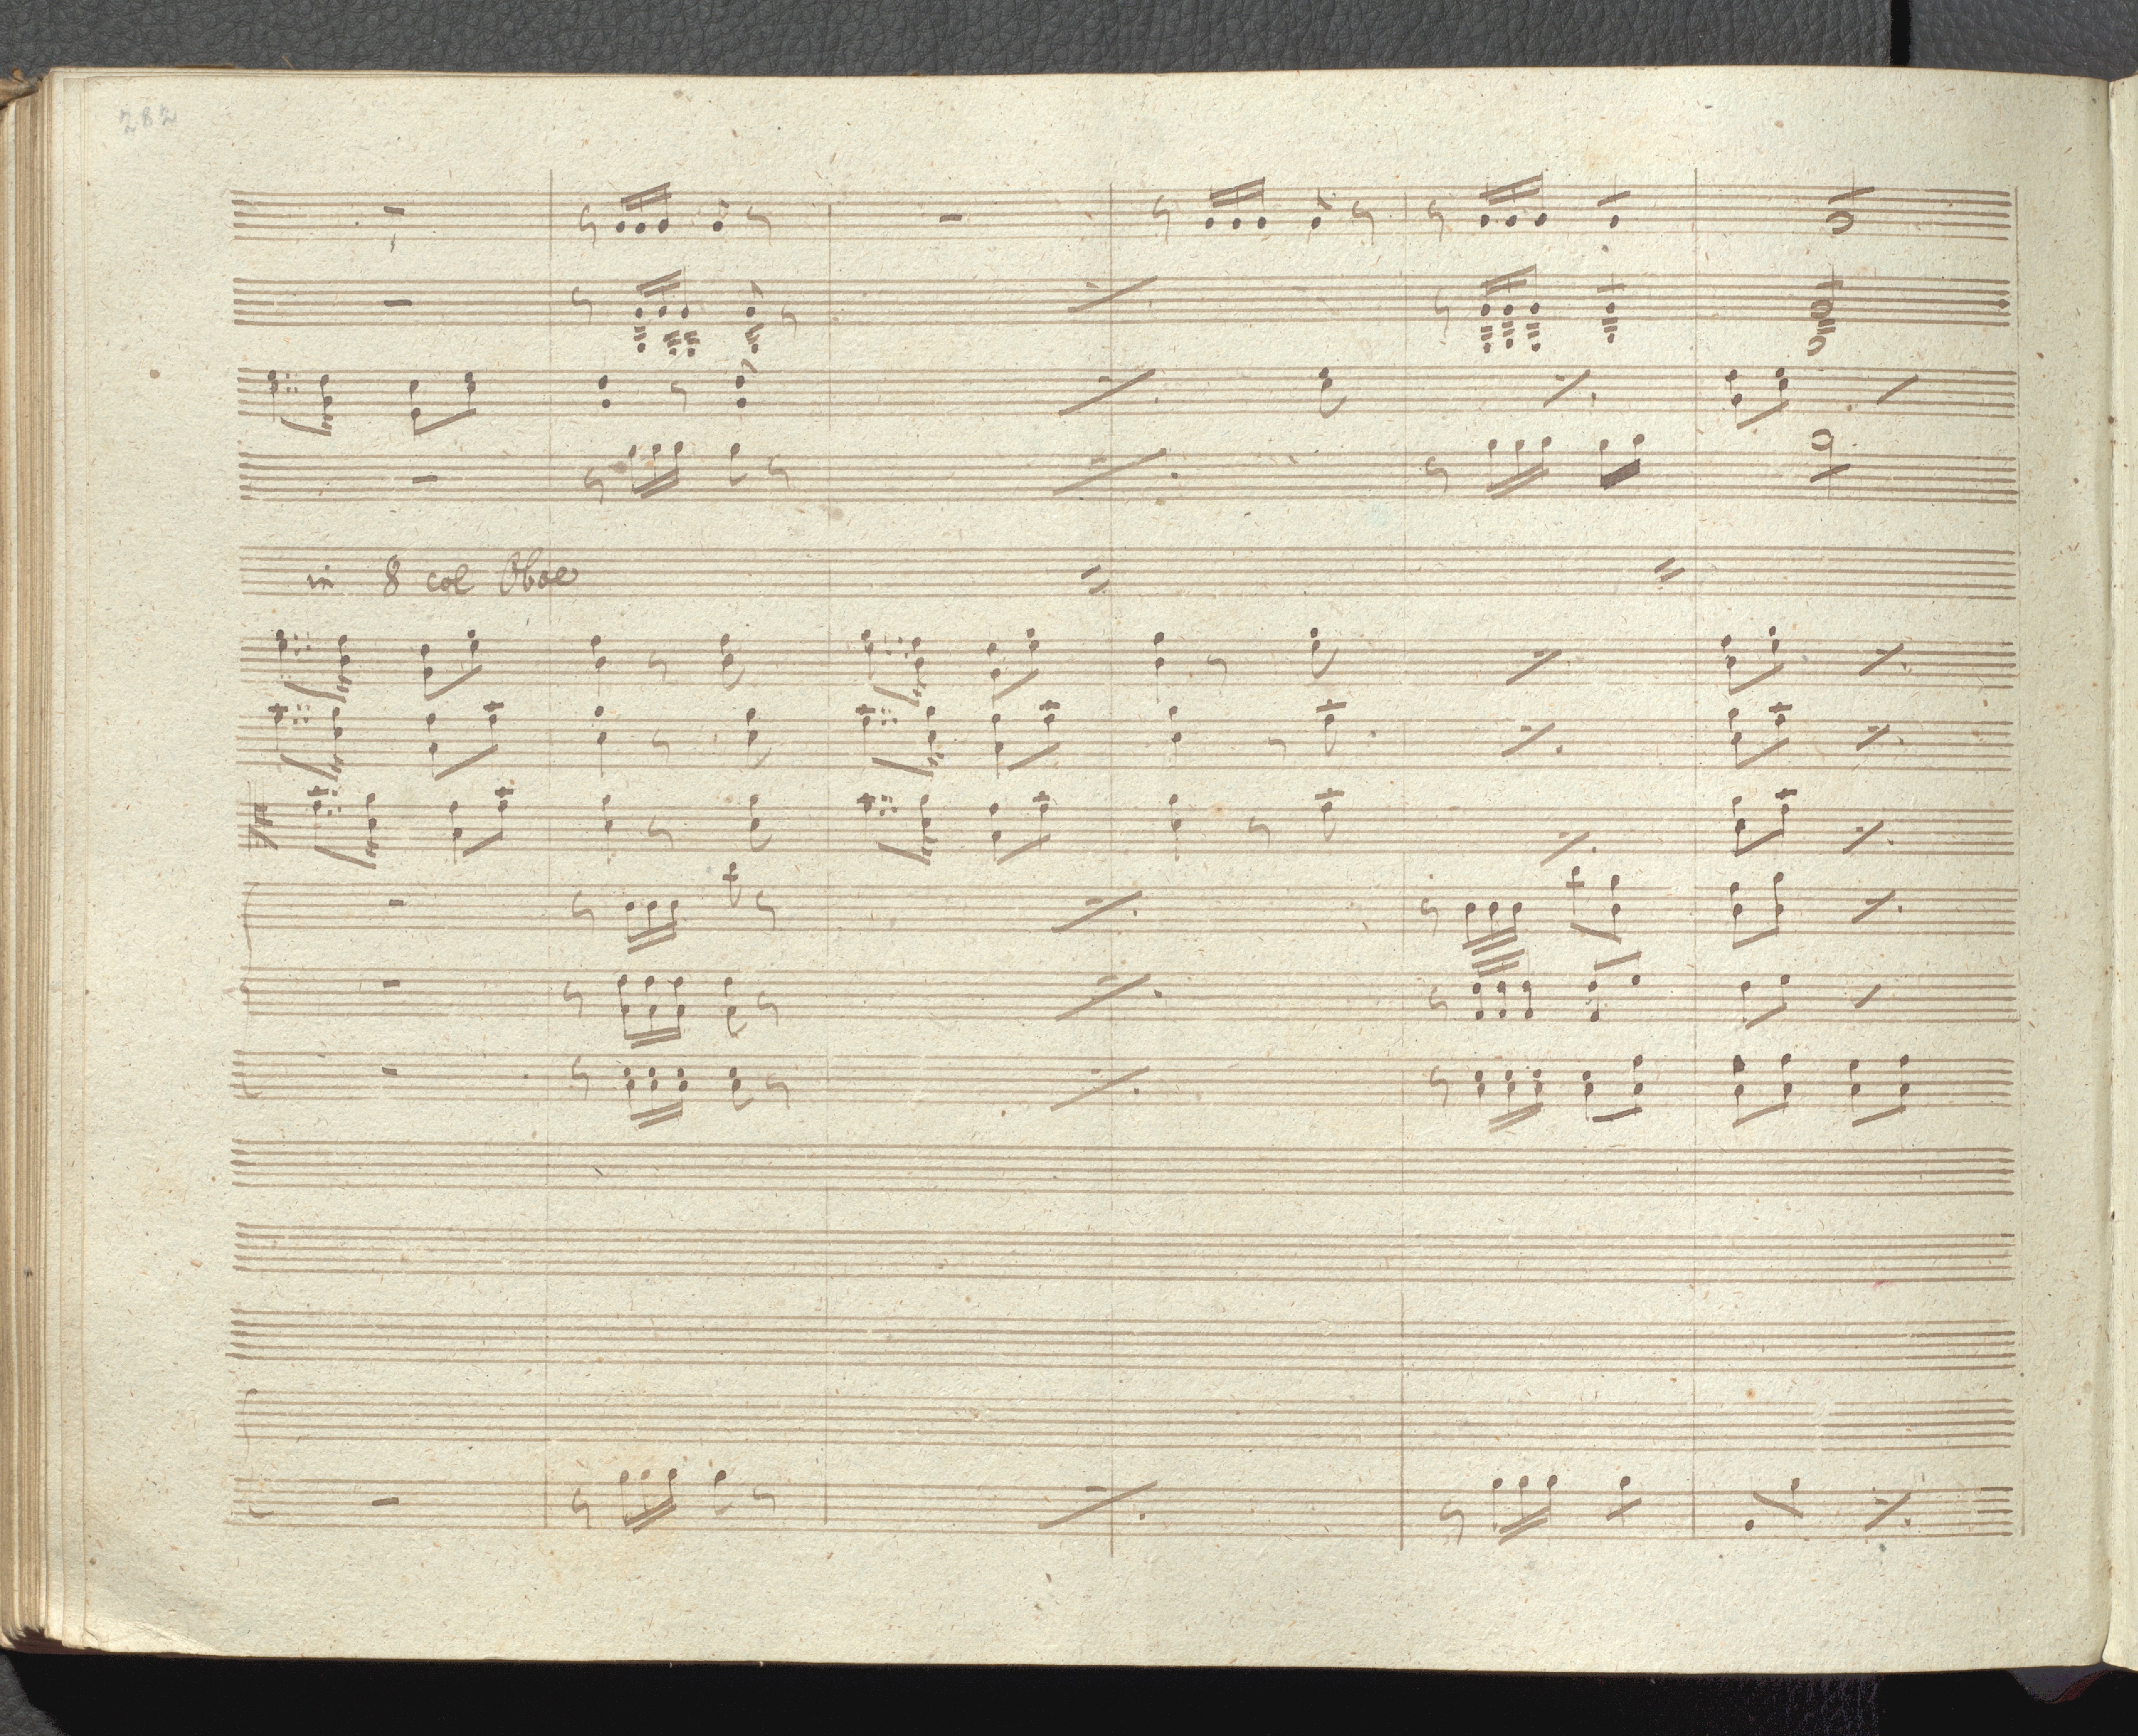 282
in 8 col Oboe